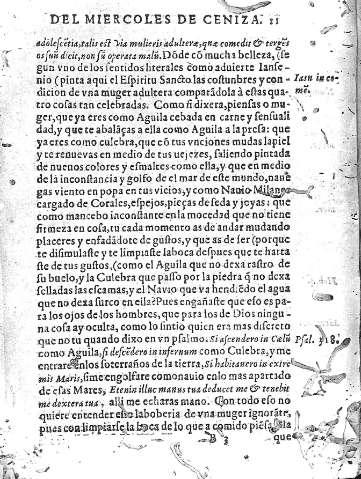 DEL MIERCOLES DE CENIZA. 11
adolescẽtia, talis est via mulieris adulteræ, quæ comedit & tergẽs
os suũ dicit, non sũ operata malũ. Dõde cõ mucha belleza, (se
gun vno de los sentidos literales como aduierte Ianse-
nio (pinta aqui el Espiritu Sancto las costunbres y con-
Iasn in co-
dicion de vna muger adultera comparãdola à estas qua-
mẽ.
tro cosas tan celebradas. Como si dixera, piensas o mu-
ger, que ya eres como Aguila cebada en carne y sensuali
dad, y que te abalãças a ella como Aguila a la presa: que
ya eres como culebra, que cõ tus vnciones mudas la piel
y te renueuas en medio de tus vejezes, saliendo pintada
de nueuos colores y esmaltes como ella, y que en medio
de la inconstancia y golfo de el mar de este mundo, naue
gas viento en popa en tus vicios, y como Nauio Milanes
cargado de Corales, espejos, pieças de seda y joyas: que
como mancebo inconstante en la mocedad que no tiene
firmeza en cosa, tu cada momento as de andar mudando
placeres y enfadãdote de gustos, y que as de ser (porque
te disimulaste y te limpiaste la boca despues que te harta
ste de tus gustos, (como el Aguila que no dexa rastro de
su buelo, y la Culebra que passo por la piedra q̃ no dexa
selladas las escamas, y el Nauio que va hendiẽdo el agua
que no dexa surco en ella? Pues engañaste que eso es pa-
ra los ojos de los hombres, que para los de Dios ningu-
na cosa ay oculta, como lo sintio quien era mas discreto
que no tu quando dixo en vn psalmo. Si ascendero in Cælũ
Psal. 138.
como Aguila, si descẽdero in infernum como Culebra, y me
entrare en los soterraños de la tierra, Si habitauero in extre
mis Maris, si me engolfare como nauio en lo mas apartado
de esas Mares, Etenim illuc manus tua deducet me & tenebit
me dextera tua, alli me echaras mano. Con todo eso no
quiere entender eso la boberia de vna muger ignorãte,
pues con limpiarse la boca de lo que a comido piẽsa
B 3
que